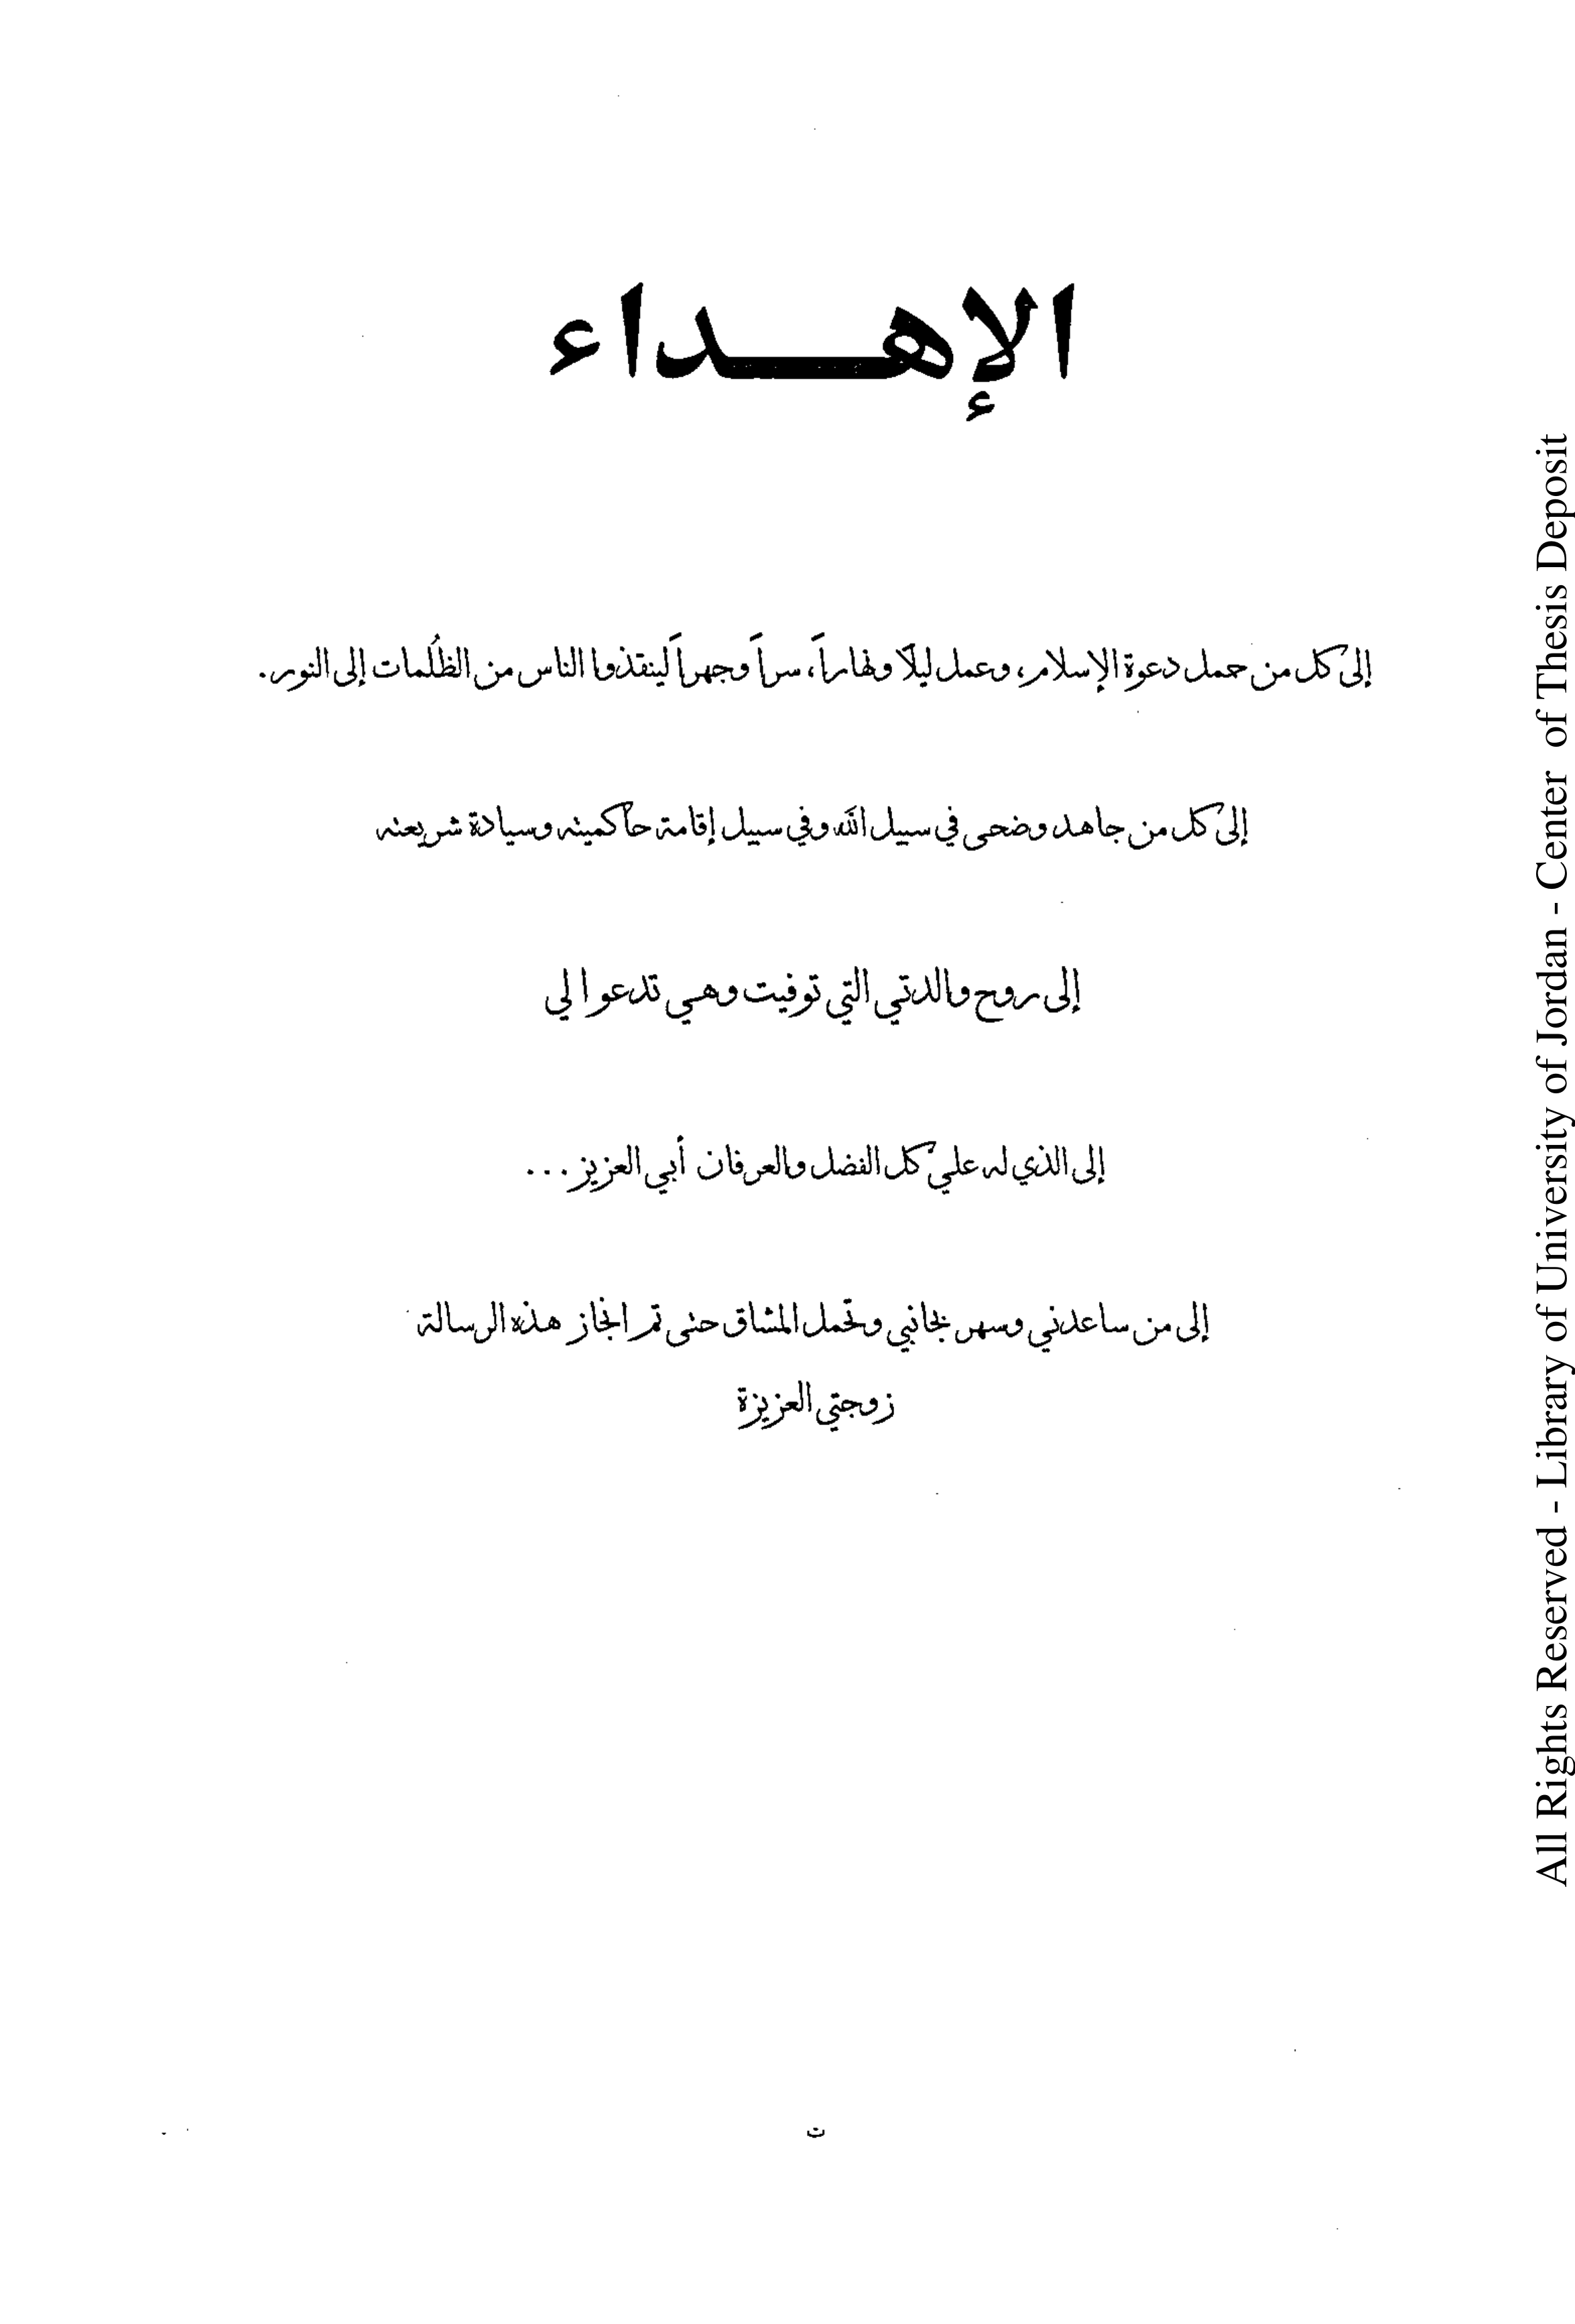 الإهـــداء
إلى كل من حمل دعوة الإسلام، وعمل ليلًا ونهاراً، سراً وجهراً لينقذوا الناس من الظُلمات إلى النور.
إلى كل من جاهد وضحى في سبيل الله وفي سبيل إقامة حاكميته وسيادة شريعته
إلى روح والدتي التي توفيت وهي تدعوا لي
إلى الذي له علي كل الفضل والعرفان أبي العزيز...
إلى من ساعدني وسهر بجانبي وتحمل المشاق حتى تم انجاز هذه الرسالة
زوجتي العزيزة
ت
All Rights Reserved - Library of University of Jordan - Center of Thesis Deposit